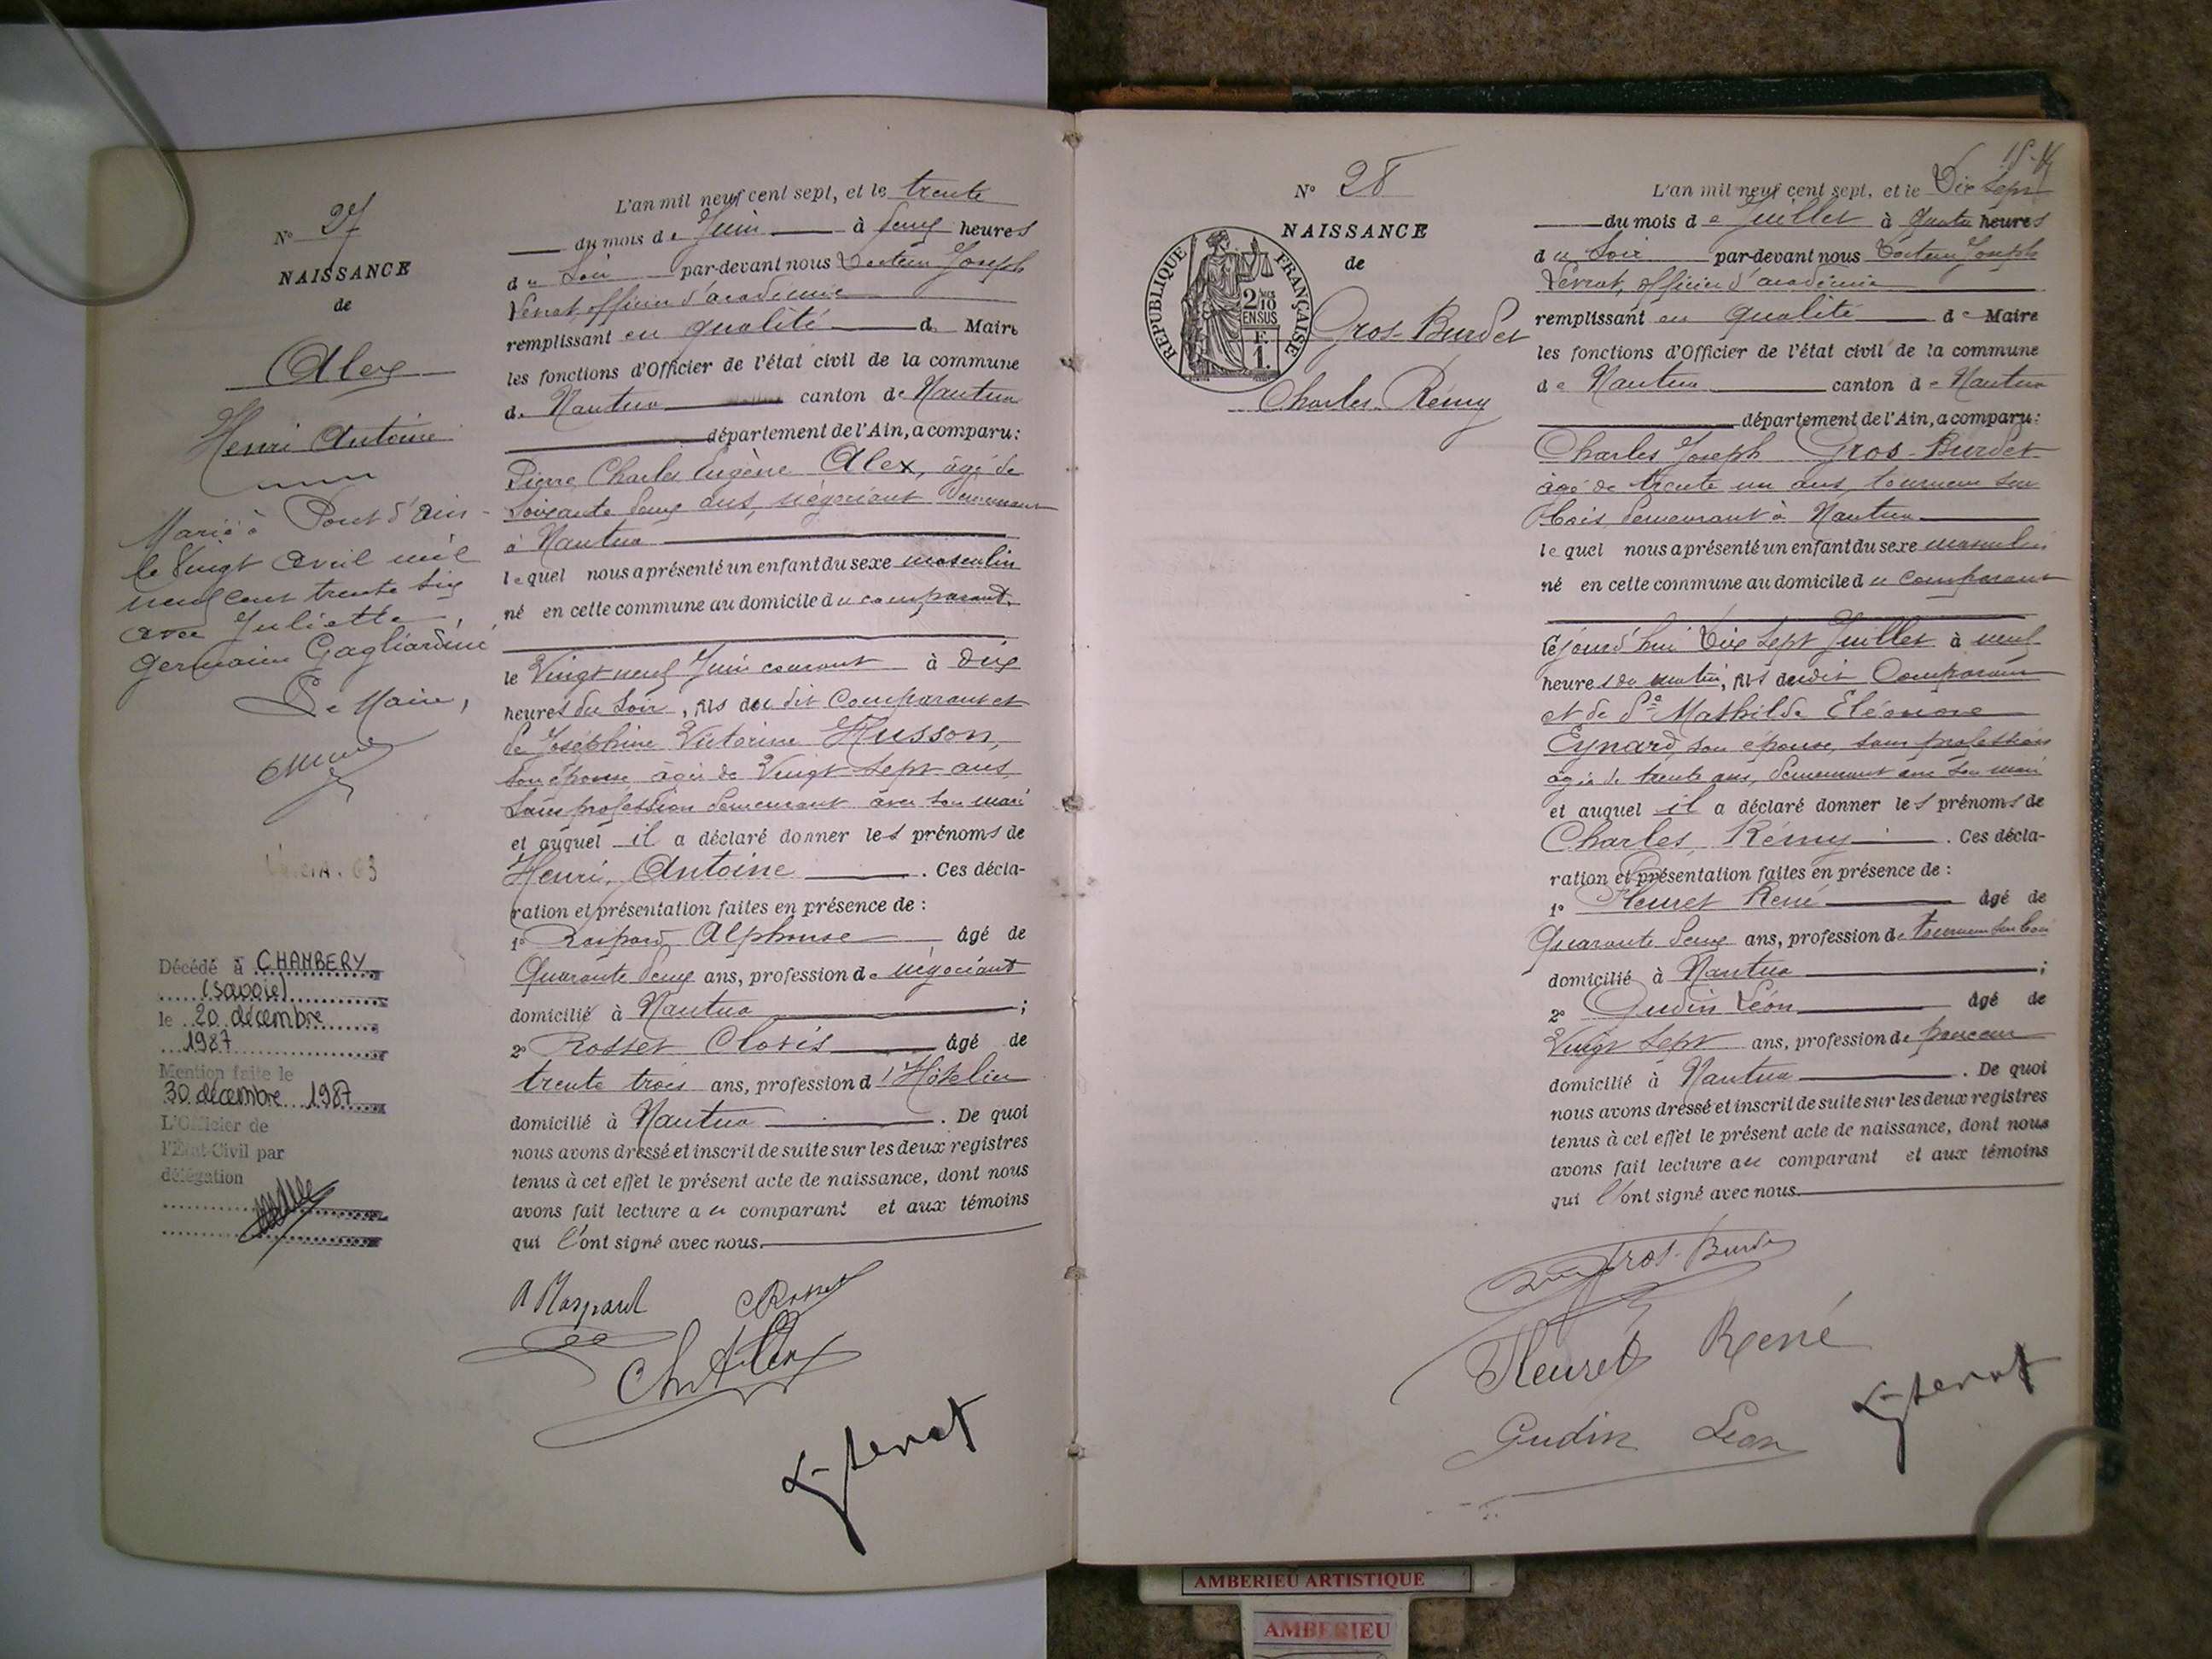 N° 27
NAISSANCE
de
Alex
Henri Antoine
Marié à Pont d'Ain
le vingt avril mil
neuf cent trente six
avec Juliette
Germaine Gagliardini
Le Maire,
Décédé à CHAMBERY
(Savoie)
le 20 décembre
1987
Mention faite le
30 décembre 1987
L'Officier de
l'Etat-Civil par
délégation
L'an mil neuf cent sept, et le trente
du mois de Juin à deux heures
du Soir par-devant nous Docteur Joseph
officier d'académie
remplissant en qualité de Maire
les fonctions d'Officier de l'état civil de la commune
de Nantua canton de Nantua
département de l'Ain, a comparu:
Pierre Charles Eugène Alex, âgé de
soixante deux ans, négociant demeurant
à Nantua
lequel nous a présenté un enfant du sexe masculin
né en cette commune au domicile du comparant
le Vingt neuf Juin courant à dix
heures du soir, fils du dit Comparant et
de Joséphine Victorine Husson,
son épouse âgée de Vingt sept ans
sans profession demeurant avec son mari
et auquel il a déclaré donner les prénoms de
Henri, Antoine. Ces décla-
ration et présentation faites en présence de :
1° Raspaud Alphonse âgé de
Quarante deux ans, profession de négociant
domicilié à Nantua ;
2° Rosset Clovis âgé de
trente trois ans, profession d'Hôtelier
domicilié à Nantua. De quoi
nous avons dressé et inscrit de suite sur les deux registres
tenus à cet effet le présent acte de naissance, dont nous
avons fait lecture au comparant et aux témoins
qui l'ont signé avec nous.
A Raspaud
C Rosset
Ch Alex
N° 28
NAISSANCE
de
RÉPUBLIQUE FRANÇAISE
2/10 EN SUS
F. 1.
Gros-Burdet
Charles Rémy
L'an mil neuf cent sept, et le Dix sept
du mois de Juillet à quatre heures
du Soir par-devant nous Docteur Joseph
officier d'académie
remplissant en qualité de Maire
les fonctions d'Officier de l'état civil de la commune
de Nantua canton de Nantua
département de l'Ain, a comparu:
Charles Joseph Gros-Burdet
âgé de trente un ans, tourneur sur
bois, demeurant à Nantua
lequel nous a présenté un enfant du sexe masculin
né en cette commune au domicile du comparant
cejourd'hui Dix sept Juillet à neuf
heures du matin, fils dudit Comparant
et de De Mathilde Eléonore
Eynard, son épouse, sans profession
âgée de trente ans, demeurant avec son mari
et auquel il a déclaré donner les prénoms de
Charles, Rémy. Ces décla-
ration et présentation faites en présence de :
1° Fleuret René âgé de
Quarante deux ans, profession de tourneur sur bois
domicilié à Nantua ;
2° Gudin Léon âgé de
Vingt sept ans, profession de ponceur
domicilié à Nantua. De quoi
nous avons dressé et inscrit de suite sur les deux registres
tenus à cet effet le présent acte de naissance, dont nous
avons fait lecture au comparant et aux témoins
qui l'ont signé avec nous.
Gros-Burdet
Fleuret René
Gudin Léon
AMBERIEU ARTISTIQUE
AMBERIEU